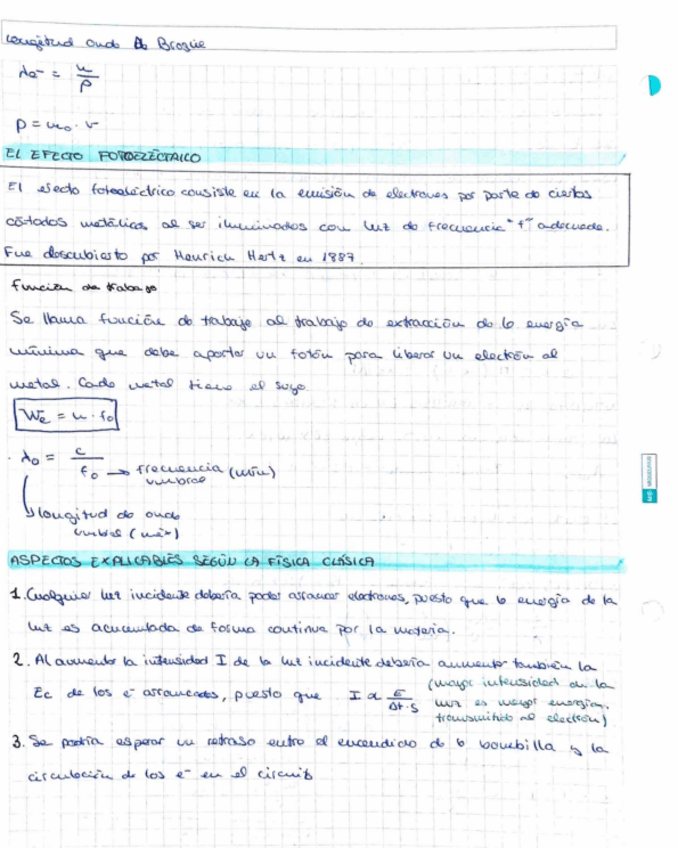 Longitud onda de Broglie
λe⁻ = h/p
p = m₀ · v
EL EFECTO FOTOELÉCTRICO
El efecto fotoeléctrico consiste en la emisión de electrones por parte de ciertos
cátodos metálicos al ser iluminados con luz de frecuencia "f" adecuada.
Fue descubierto por Heurich Hertz en 1887.
función de trabajo
Se llama función de trabajo al trabajo de extracción de la energía
mínima que debe aportar un fotón para liberar un electrón al
metal. Cada metal tiene el suyo
We = h · f₀
λ₀ = c/f₀ → frecuencia (mín)
umbral
longitud de onda
umbral (máx)
ASPECTOS EXPLICABLES SEGÚN LA FÍSICA CLÁSICA
1. Cualquier luz incidente debería poder arrancar electrones, puesto que la energía de la
luz es acumulada de forma continua por la materia.
2. Al aumentar la intensidad I de la luz incidente debería aumentar también la
Ec de los e⁻ arrancados, puesto que I α E/Δt·S (mayor intensidad de la
luz es mayor energía
transmitida al electrón)
3. Se podría esperar un retraso entre el encendido de la bombilla y la
circulación de los e⁻ en el circuito